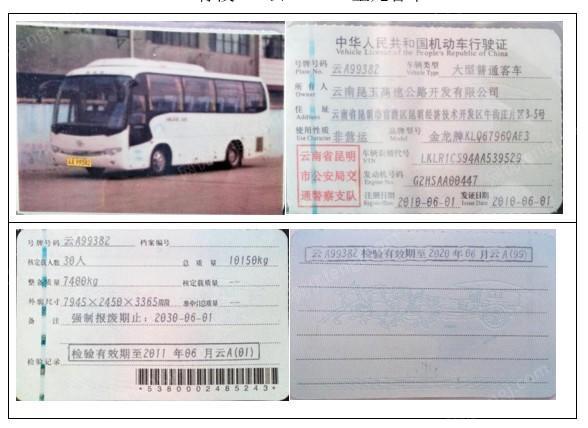 中华人民共和国机动车行驶证
Vehicle License of the People's Republic of China
号牌号码 云A99382 车辆类型 大型普通客车
Plate No. Vehicle Type
所有人 云南昆玉高速公路开发有限公司
Owner
住址
Address
使用性质 非营运 品牌型号 金龙牌KLQ6796QAE3
Use Character Model
云南省昆明
市公安局交
通警察支队
车辆识别代号 LKLR1CS94AA539529
VIN
发动机号码 G2HSAA00447
Engine No.
注册日期 2010-06-01 发证日期 2010-06-01
Register Date Issue Date
号牌号码 云A99382 档案编号
核定载人数 30人 总质量 10150kg
整备质量 7400kg 核定载质量 --
外廓尺寸 7945×2450×3365 --
备注 强制报废期止：2030-06-01
检验记录 检验有效期至2011年06月云A(01)
*5380002485243*
云A99382 检验有效期至2020年06月云A(99)